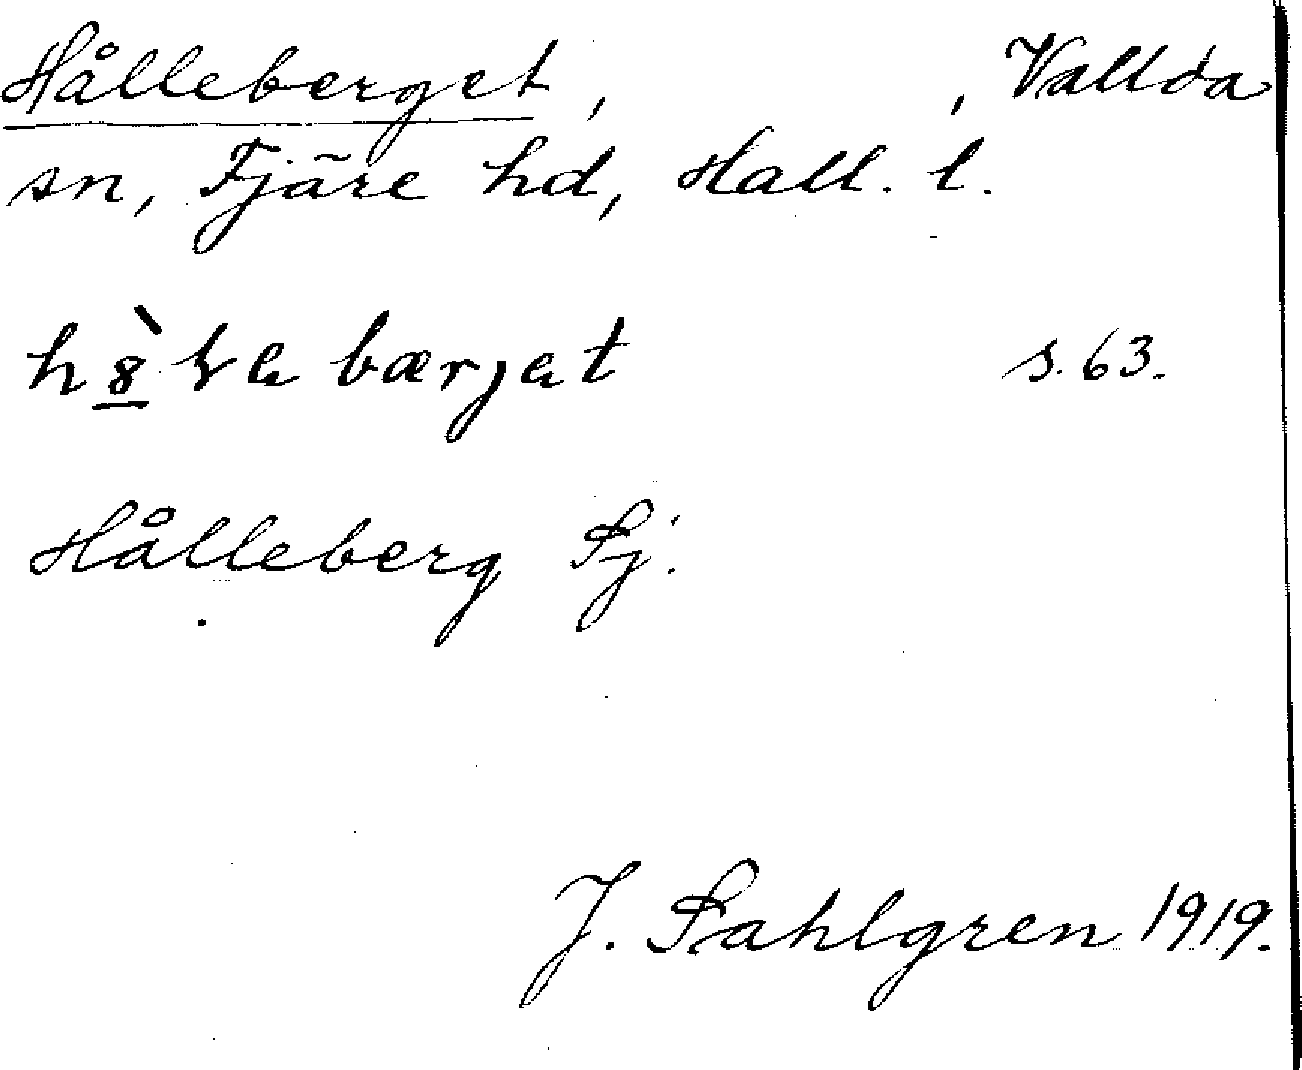 Hålleberget, , Vallda
sn, Fjäre hd, Hall. l.
s. 63.
Hålleberg Sj.
J. Sahlgren 1919.